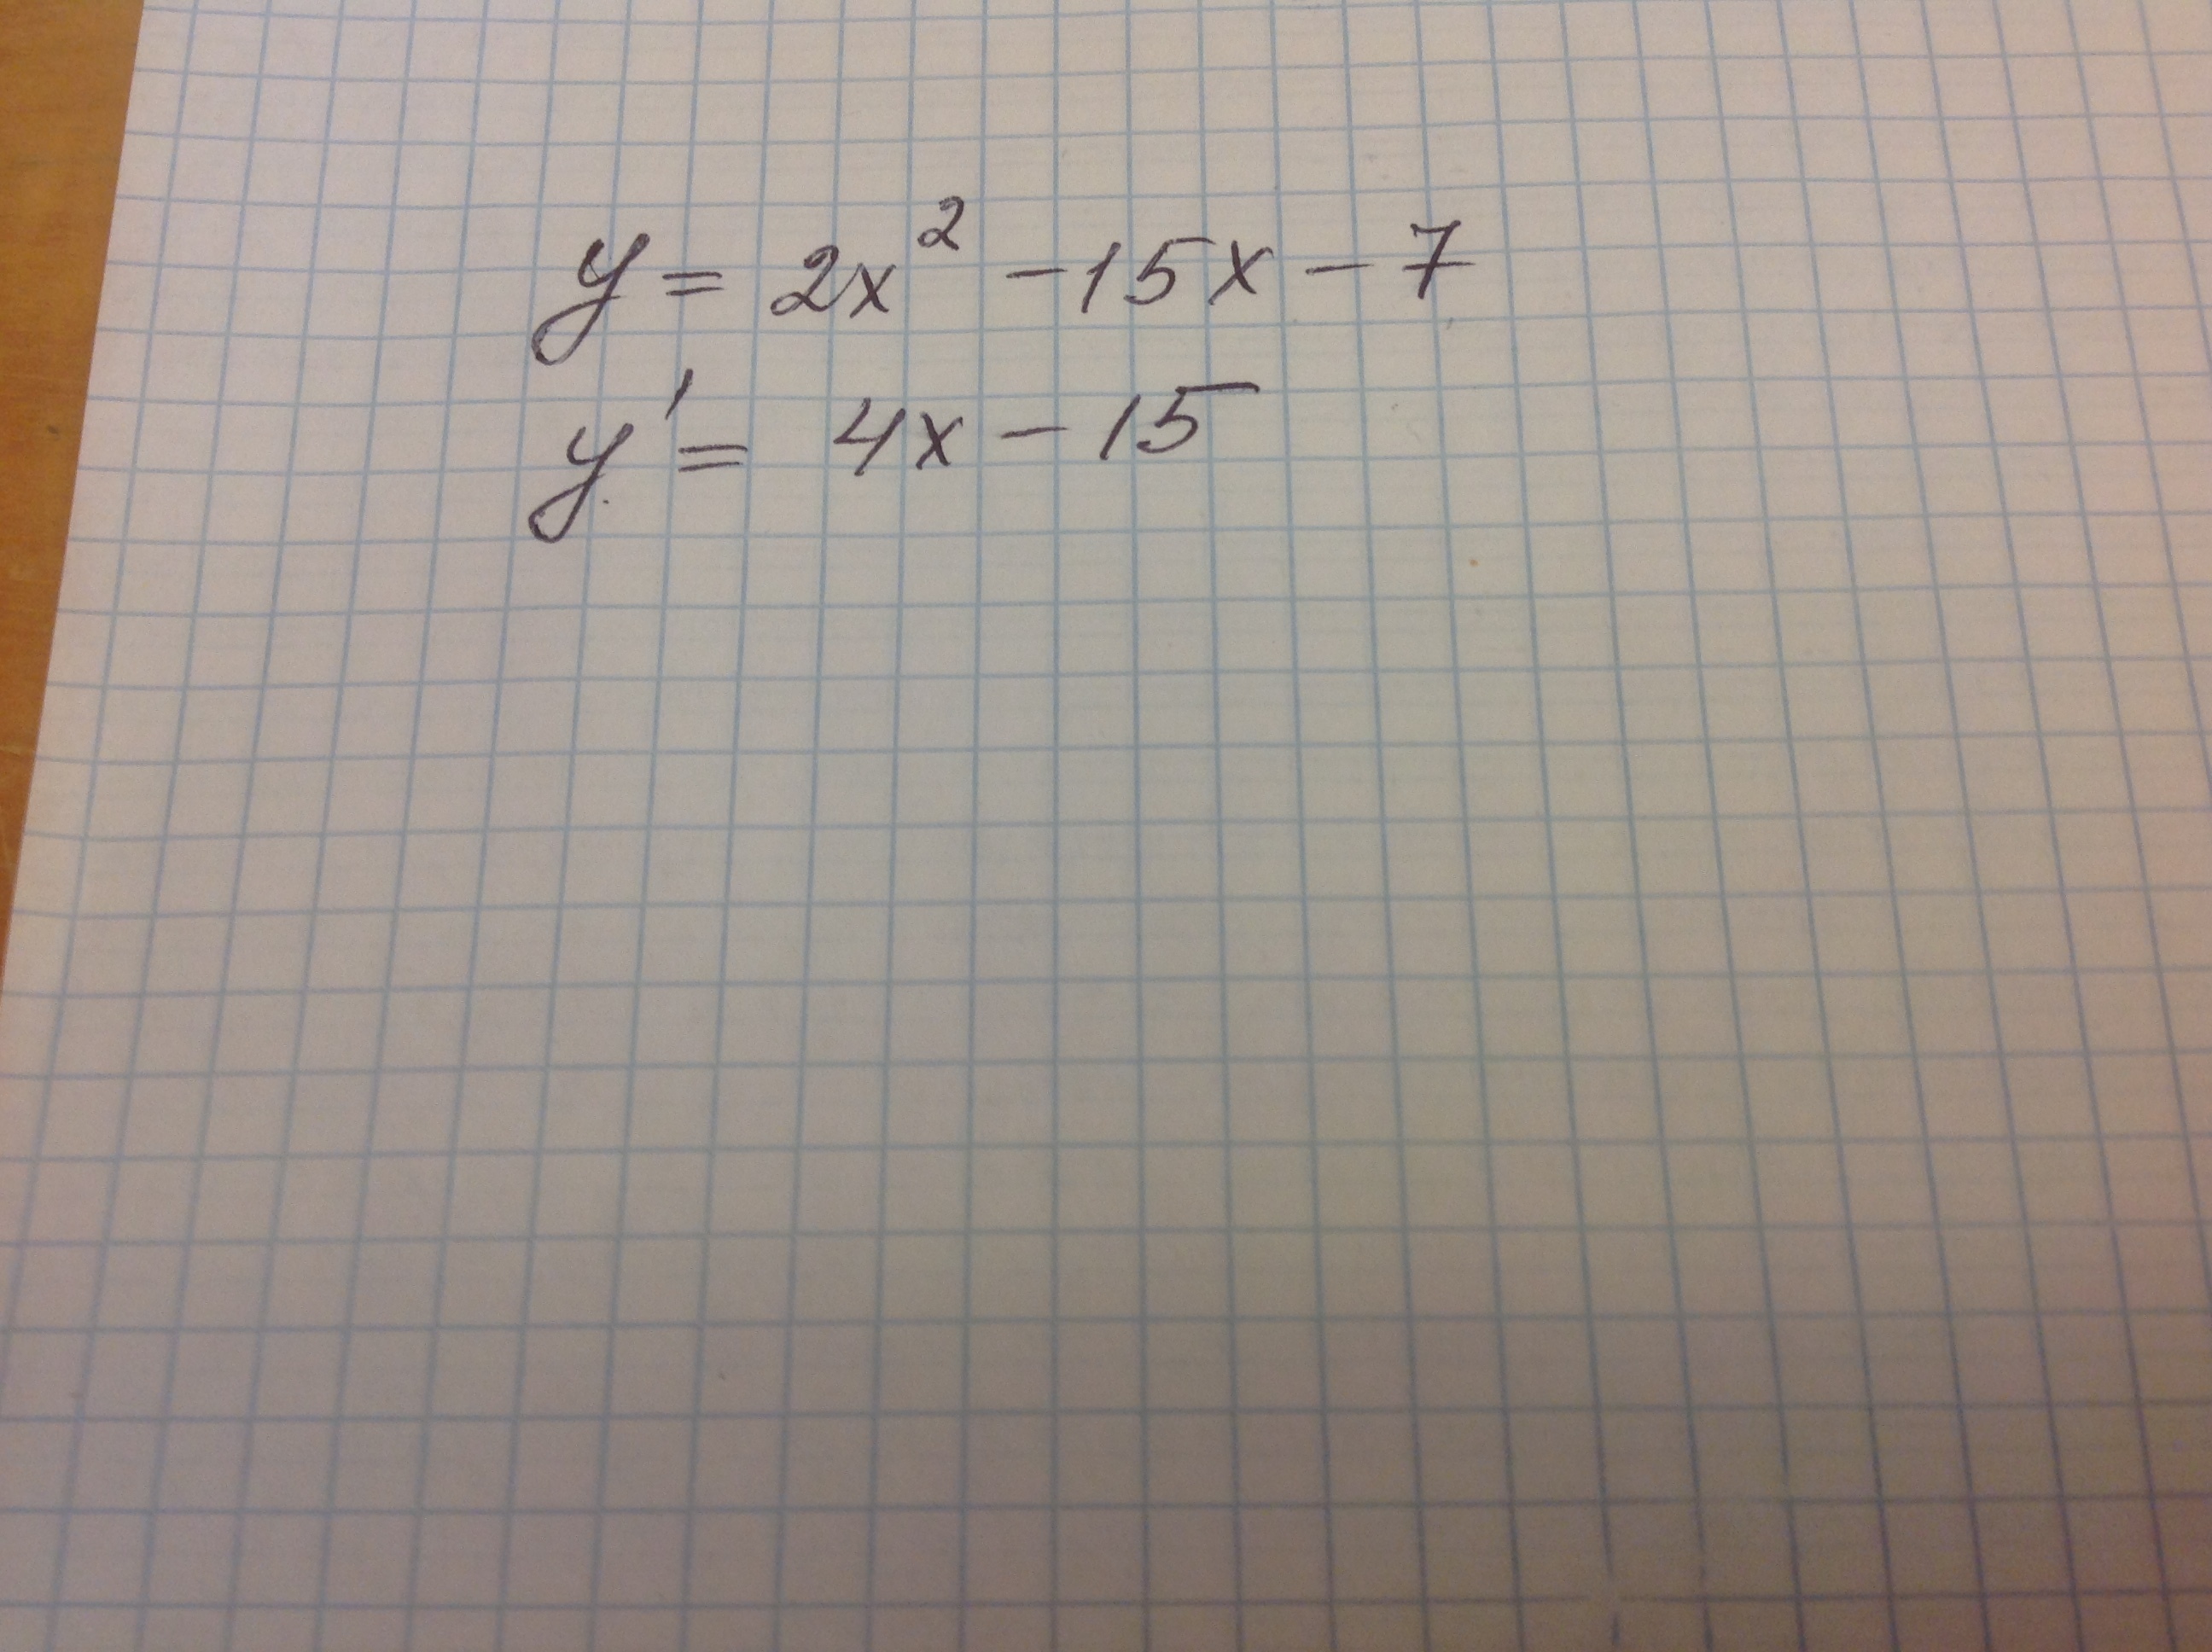 y = 2x² - 15x - 7
y' = 4x - 15